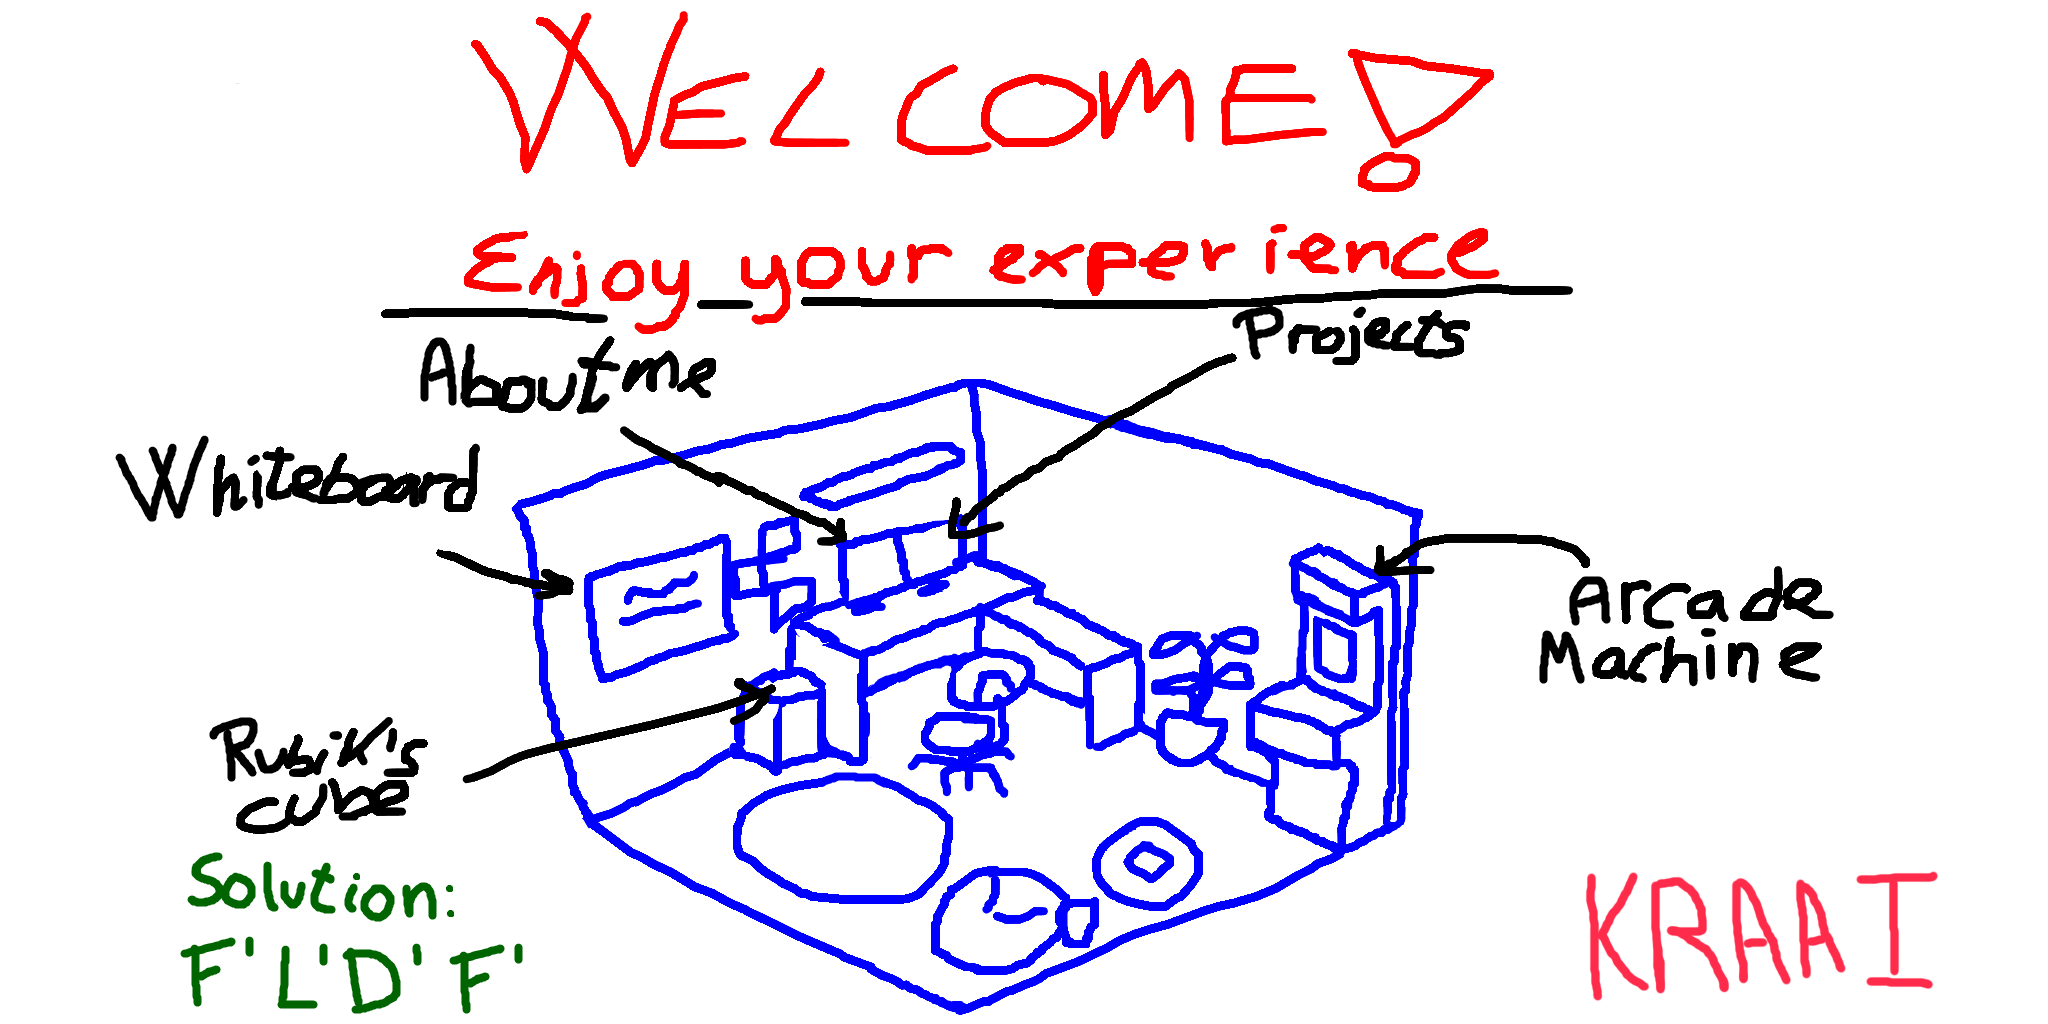 WELCOME!
Enjoy your experience
About me
Projects
Whiteboard
Arcade
Machine
Rubik's
cube
Solution:
F' L' D' F'
KRAAI